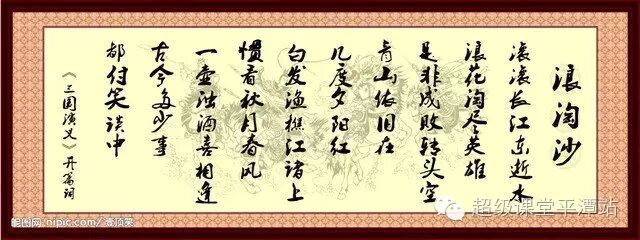 浪淘沙
滚滚长江东逝水
浪花淘尽英雄
是非成败转头空
青山依旧在
几度夕阳红
白发渔樵江渚上
惯看秋月春风
一壶浊酒喜相逢
古今多少事
都付笑谈中
《三国演义》开篇词
昵图网 nipic.com/壹顶笑
超级课堂平潭站